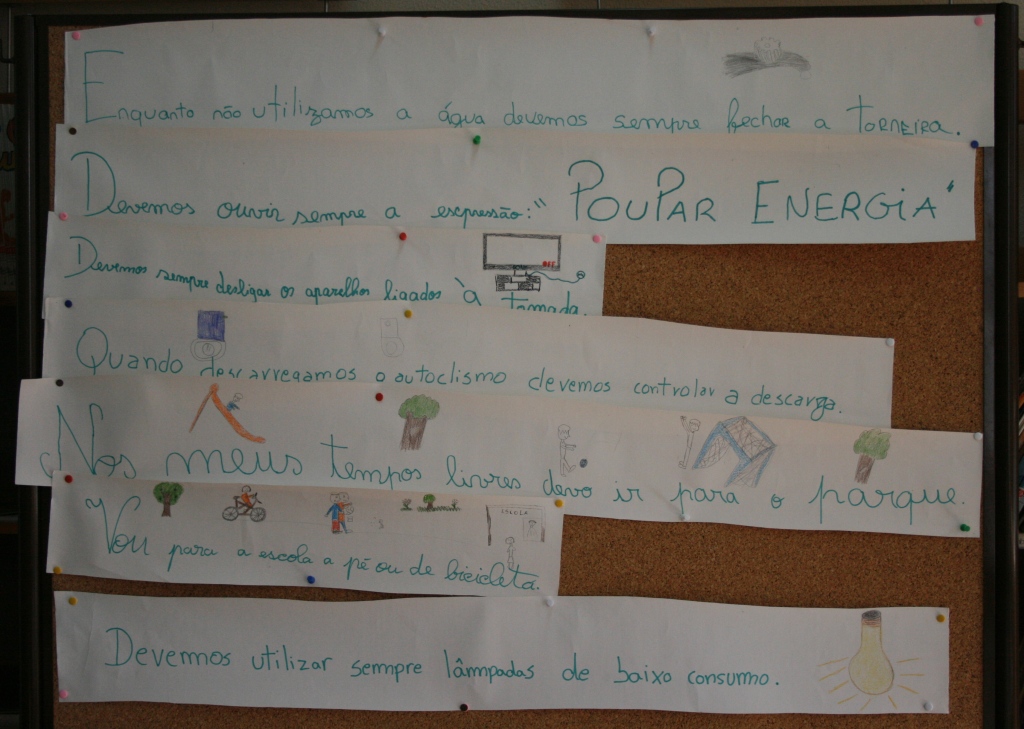 Enquanto não utilizamos a água devemos sempre fechar a TORNEIRA.
Devemos ouvir sempre a escpressão: "POUPAR ENERGIA"
Devemos sempre desligar os aparelhos ligados à tomada.
OFF
Quando descarregamos o autoclismo devemos controlar a descarga.
Nos meus tempos livres devo ir para o parque.
ESCOLA
Vou para a escola a pé ou de bicicleta.
Devemos utilizar sempre lâmpadas de baixo consumo.